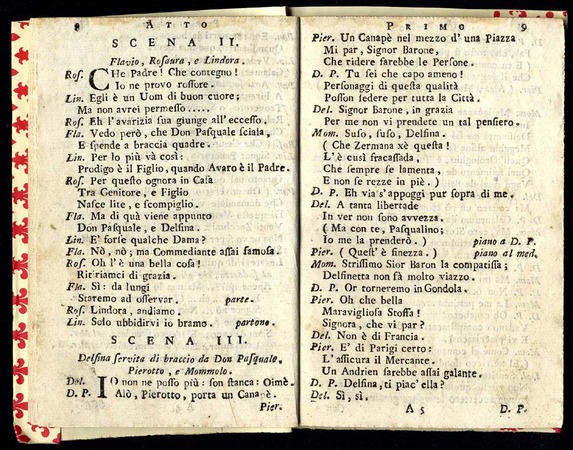 8 ATTO
SCENA II.
Flavio, Rosaura, e Lindora.
Ros. CHe Padre! Che contegno!
Io ne provo rossore.
Lin. Egli è un Uom di buon cuore;
Ma non avrei permesso.....
Ros. Eh l'avarizia sua giunge all'eccesso.
Fla. Vedo però, che Don Pasquale sciala,
E spende a braccia quadre.
Lin. Per lo più và così:
Prodigo è il Figlio, quando Avaro è il Padre.
Ros. Per questo ognora in Casa
Tra Genitore, e Figlio
Nasce lite, e scompiglio.
Fla. Ma di quà viene appunto
Don Pasquale, e Delfina.
Lin. E' forse qualche Dama?
Fla. Nò, nò; ma Commediante assai famosa.
Ros. Oh l'è una bella cosa!
Ritiriamci di grazia.
Fla. Sì: da lungi
Staremo ad osservar. parte.
Ros. Lindora, andiamo.
Lin. Solo ubbidirvi io bramo. partono.
SCENA III.
Delfina servita di braccio da Don Pasquale,
Pierotto, e Mommolo.
Del. IO non ne posso più: son stanca: Oimè.
D. P. Alò, Pierotto, porta un Canapè.
Pier.
PRIMO 9
Pier. Un Canapè nel mezzo d'una Piazza
Mi par, Signor Barone,
Che ridere farebbe le Persone.
D. P. Tu sei che capo ameno!
Personaggi di questa qualità
Posson seder per tutta la Città.
Del. Signor Barone, in grazia
Per me non vi prendete un tal pensiero.
Mom. Suso, suso, Delfina.
(Che Zermana xè questa!
L'è cusì fracassada,
Che sempre se lamenta,
E non se rezze in piè.)
D. P. Eh via s'appoggi pur sopra di me.
Del. A tanta libertade
In ver non sono avvezza.
(Ma con te, Pasqualino;
Io me la prenderò.) piano a D. P.
Pier. (Quest' è finezza.) piano al med.
Mom. Strissimo Sior Baron la compatissa;
Delfinetta non fà molto viazzo.
D. P. Or torneremo in Gondola.
Pier. Oh che bella
Maravigliosa Stoffa!
Signora, che vi par?
Del. Non è di Francia.
Pier. E' di Parigi certo:
L'assicura il Mercante.
Un Andrien sarebbe assai galante.
D. P. Delfina, ti piac' ella?
Del. Sì, sì.
A5 D. P.